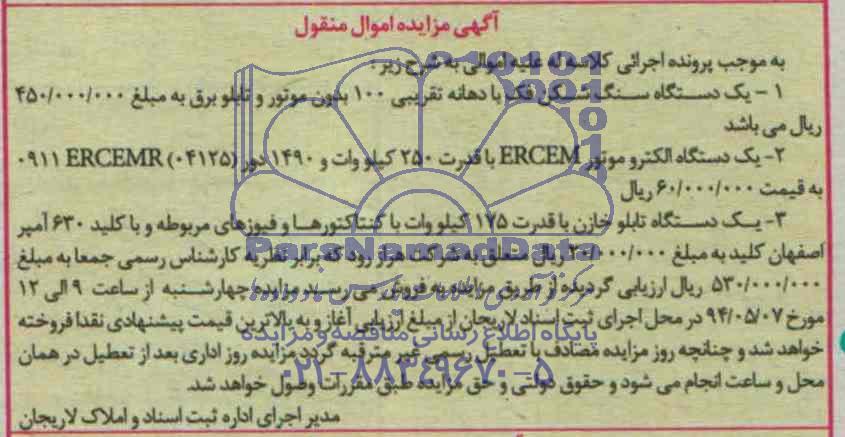 آگهی مزایده اموال منقول
به موجب پرونده اجرائی کلاسه له علیه اموالی به شرح زیر :
۱ – یک دستگاه سنگ شکن فک با دهانه تقریبی ۱۰۰ بدون موتور و تابلو برق به مبلغ ۴۵۰/۰۰۰/۰۰۰
ریال می باشد
۲- یک دستگاه الکترو موتور ERCEM با قدرت ۲۵۰ کیلو وات و ۱۴۹۰ دور (۰۴۱۲۵) ERCEMR ۰۹۱۱
به قیمت ۶۰/۰۰۰/۰۰۰ ریال
۳- یک دستگاه تابلو خازن با قدرت ۱۷۵ کیلو وات با کنتاکتورها و فیوزهای مربوطه و با کلید ۶۳۰ آمپر
اصفهان کلید به مبلغ ۲۰/۰۰۰/۰۰۰ ریال متعلق به شرکت هراز رود که برابر نظریه کارشناس رسمی جمعا به مبلغ
۵۳۰/۰۰۰/۰۰۰ ریال ارزیابی گردیده از طریق مزایده به فروش می رسد مزایده چهارشنبه از ساعت ۹ الی ۱۲
مورخ ۹۴/۰۵/۰۷ در محل اجرای ثبت اسناد لاریجان از مبلغ ارزیابی آغاز و به بالاترین قیمت پیشنهادی نقدا فروخته
خواهد شد و چنانچه روز مزایده مصادف با تعطیل رسمی غیر مترقبه گردد مزایده روز اداری بعد از تعطیل در همان
محل و ساعت انجام می شود و حقوق دولتی و حق مزایده طبق مقررات وصول خواهد شد.
مدیر اجرای اداره ثبت اسناد و املاک لاریجان
ParsNamadData
پایگاه اطلاع رسانی مناقصه و مزایده
۰۲۱-۸۸۳۴۹۶۷۰-۵